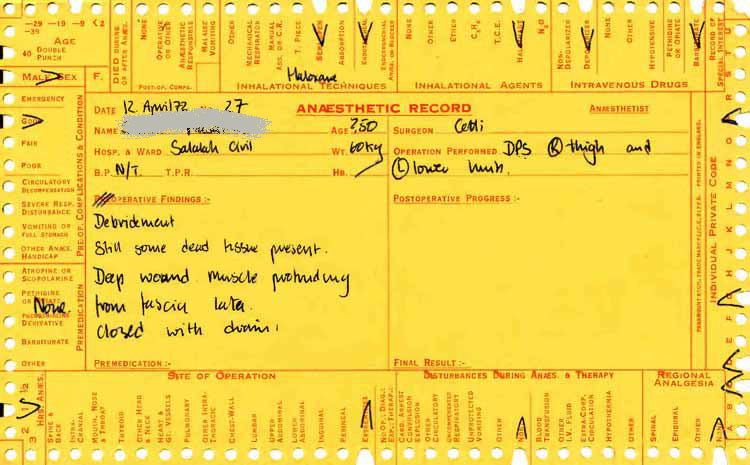 –29 –19 –9 <2
–39
AGE
40 DOUBLE PUNCH
MALE SEX F.
DIED DURING OR AFTER ANÆS.
NONE
OPERATIVE OR OTHER
ANÆSTHETIC RESPIRATORY
MALAISE VOMITING
OTHER
POST-OP. COMPL.
MECHANICAL RESPIRATOR
MANUAL ASS. OR C.R.
T. PIECE
ABSORPTION
Halothane
INHALATIONAL TECHNIQUES
NONE
OTHER
ETHER
T.C.E.
N₂O
INHALATIONAL AGENTS
NON-DEPOLARIZER
DEPOLARIZER
OTHER
HYPOTENSIVE
PETHIDINE OR OPIATE
INTRAVENOUS DRUGS
RECORD OF SPECIAL INTEREST
EMERGENCY
FAIR
POOR
CIRCULATORY DECOMPENSATION
SEVERE RESP. DISTURBANCE
VOMITING OR FULL STOMACH
OTHER ANÆS. HANDICAP
PRE-OP. COMPLICATIONS & CONDITION
ATROPINE OR SCOPOLAMINE
PETHIDINE
None.
DERIVATIVE
BARBITURATE
OTHER
PREMEDICATION
DATE 12 April 72 27
ANÆSTHETIC RECORD
ANÆSTHETIST
NAME
AGE ?50
SURGEON
HOSP. & WARD Salalah Civil
WT. 60kg
OPERATION PERFORMED DPS (R) thigh and
B.P. N/T. T.P.R.
HB.
(L) lower limb.
OPERATIVE FINDINGS :-
POSTOPERATIVE PROGRESS :-
Debridement
Still some dead tissue present.
Deep wound. Muscle protruding
from fascia later.
Closed with drain.
PREMEDICATION :-
FINAL RESULT :-
PRINTED IN ENGLAND.
INDIVIDUAL PRIVATE CODE
SITE OF OPERATION
SPINE & BACK
INTRA-CRANIAL
MOUTH, NOSE & THROAT
THYROID
OTHER HEAD & NECK
HEART & GT. VESSELS
PULMONARY
OTHER INTRA-THORACIC
CHEST-WALL
LUMBAR
UPPER ABDOMINAL
LOWER ABDOMINAL
INGUINAL
PERINEAL
DISTURBANCES DURING ANÆS. & THERAPY
CARD. ARREST
CONVULSION
EXPLOSION
OTHER CIRCULATORY
OTHER RESPIRATORY
UNPROTECTED VOMITING
OTHER
BLOOD TRANSFUSION
OTHER I.V. FLUID
EXTRA-CORP. CIRCULATION
HYPOTHERMIA
OTHER
REGIONAL ANALGESIA
SPINAL
EPIDURAL
OTHER